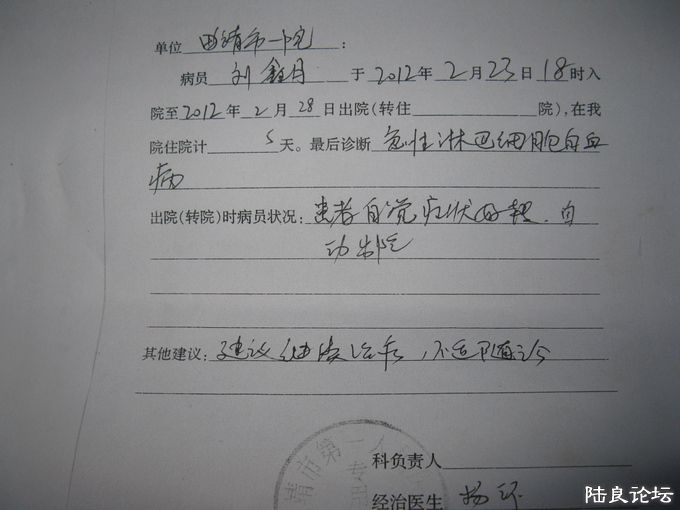 单位 曲靖市一院：
病员 刘鑫月 于 2012年 2月 23日 18时入
院至 2012年 2月 28日出院(转住 院)，在我
院住院计 5 天。最后诊断 急性淋巴细胞白血
病
出院(转院)时病员状况：患者自觉症状好转，自
动出院
其他建议：建议继续治疗，不适随诊
靖市第一人
专用
科负责人
经治医生 杨
陆良论坛